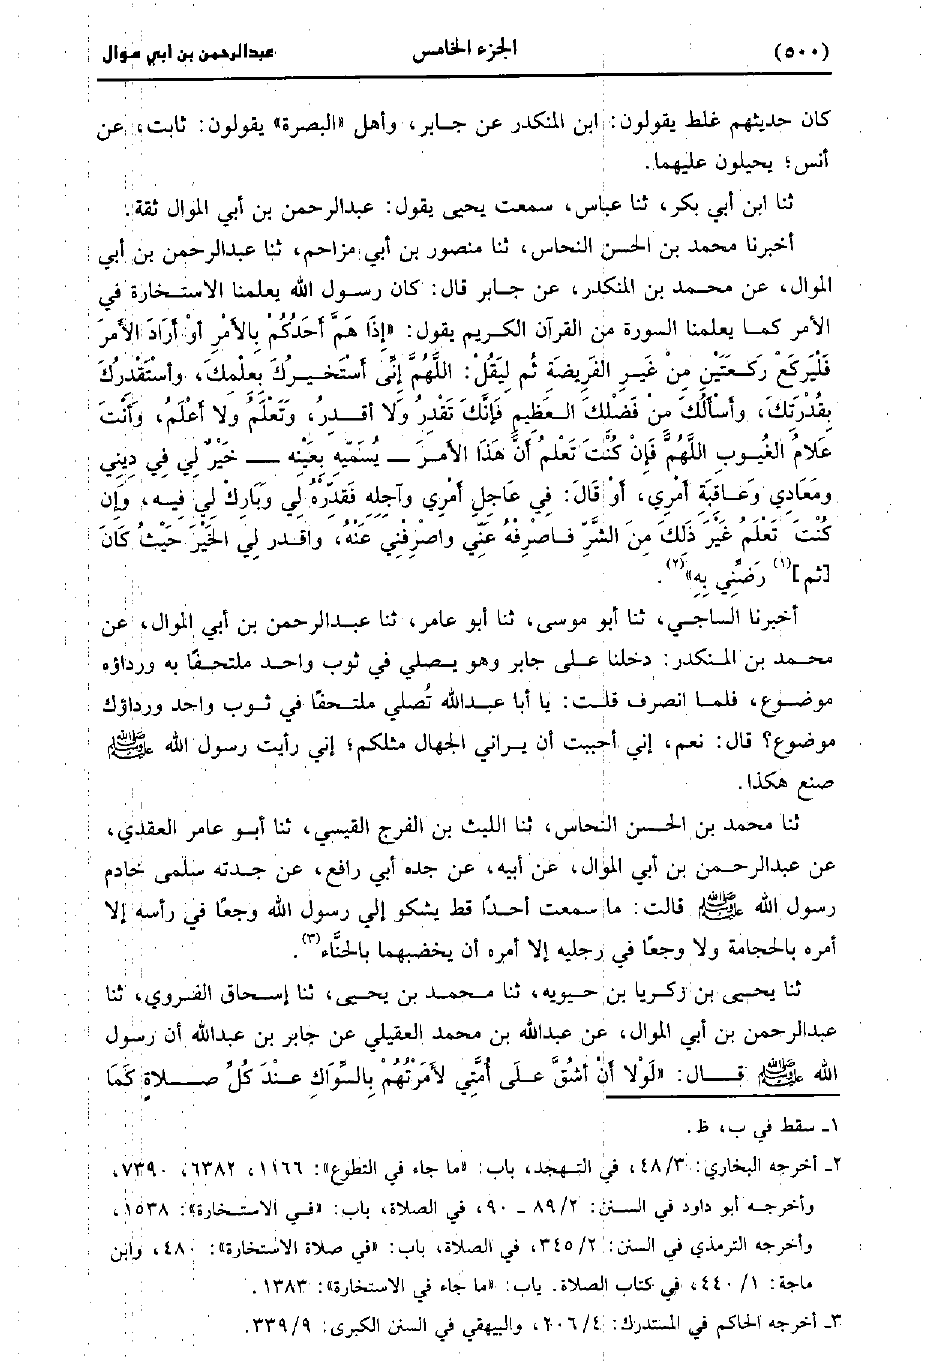 (٥٠٠) الجزء الخامس عبدالرحمن بن ابي موال
كان حديثهم غلط يقولون: ابن المنكدر عن جابر، وأهل «البصرة» يقولون: ثابت، عن
أنس؛ يحيلون عليهما.
ثنا ابن أبي بكر، ثنا عباس، سمعت يحيى يقول: عبدالرحمن بن أبي الموال ثقة.
أخبرنا محمد بن الحسن النحاس، ثنا منصور بن أبي مزاحم، ثنا عبدالرحمن بن أبي
الموال، عن محمد بن المنكدر، عن جابر قال: كان رسول الله يعلمنا الاستخارة في
الأمر كما يعلمنا السورة من القرآن الكريم يقول: «إِذَا هَمَّ أَحَدُكُمْ بِالأَمْرِ أَوْ أَرَادَ الأَمْرَ
فَلْيَرْكَعْ رَكْعَتَيْنِ مِنْ غَيْرِ الفَرِيضَةِ ثُم لِيَقُلْ: اللَّهُمَّ إِنِّى أَسْتَخِيرُكَ بِعِلْمِكَ، وأَستَقْدِرُكَ
بِقُدْرَتِكَ، وأَسأَلُكَ مِنْ فَضْلِكَ العَظِيمِ فَإِنَّكَ تَقْدِرُ وَلَا أَقْدِرُ، وَتَعْلَمُ ولا أَعْلَمُ، وأَنْتَ
عَلامُ الغُيوبِ اللَّهُمَّ فَإِنْ كُنْتَ تَعْلَمُ أَنَّ هَذَا الأَمرَ ــ يُسَمِّيهِ بِعَيْنِهِ ــ خَيْرٌ لِي فِي دِيني
ومَعَادِي وَعَاقِبَةِ أَمْرِي، أَوْ قَالَ: فِي عَاجِلِ أَمْرِي وآجِلِهِ فَقَدِّرْهُ لِي وَبَارِكْ لِي فيهِ، وإِن
كُنْتَ تَعْلَمُ غَيْرَ ذَلِكَ مِنَ الشَّرِّ فَاصرِفْهُ عَنِّي واصْرِفْنِي عَنْهُ، واقدر لِي الخَيْرَ حَيْثُ كَانَ
[ثم](١) رَضِّنِي بِهِ»(٢).
أخبرنا الساجي، ثنا أبو موسى، ثنا أبو عامر، ثنا عبدالرحمن بن أبي الموال، عن
محمد بن المنكدر: دخلنا على جابر وهو يصلي في ثوب واحد ملتحفًا به ورداؤه
موضوع، فلما انصرف قلت: يا أبا عبدالله تُصلي ملتحفًا في ثوب واحد ورداؤك
موضوع؟ قال: نعم، إني أحببت أن يراني الجهال مثلكم؛ إني رأيت رسول الله ﷺ
صنع هكذا.
ثنا محمد بن الحسن النحاس، ثنا الليث بن الفرج القيسي، ثنا أبو عامر العقدي،
عن عبدالرحمن بن أبي الموال، عن أبيه، عن جده أبي رافع، عن جدته سلمى خادم
رسول الله ﷺ قالت: ما سمعت أحدًا قط يشكو إلي رسول الله وجعًا في رأسه إلا
أمره بالحجامة ولا وجعًا في رجليه إلا أمره أن يخضبهما بالحنَّاء(٣).
ثنا يحيى بن زكريا بن حيويه، ثنا محمد بن يحيى، ثنا إسحاق الفروي، ثنا
عبدالرحمن بن أبي الموال، عن عبدالله بن محمد العقيلي عن جابر بن عبدالله أن رسول
الله ﷺ قال: «لَوْلا أَنْ أَشُقَّ عَلَى أُمَّتِي لأَمَرْتُهُمْ بالسِّوَاكِ عِنْدَ كُلِّ صَلاةٍ كَمَا
١ـ سقط في ب، ظ.
٢ـ أخرجه البخاري: ٤٨/٣، في التهجد، باب: «ما جاء في التطوع»: ١١٦٦، ٦٣٨٢، ٧٣٩٠،
وأخرجه أبو داود في السنن: ٨٩/٢ ـ ٩٠، في الصلاة، باب: «في الاستخارة»: ١٥٣٨،
وأخرجه الترمذي في السنن: ٣٤٥/٢، في الصلاة، باب: «في صلاة الاستخارة»: ٤٨٠، وابن
ماجة: ٤٤٠/١، في كتاب الصلاة. باب: «ما جاء في الاستخارة»: ١٣٨٣.
٣ـ أخرجه الحاكم في المستدرك: ٢٠٦/٤، والبيهقي في السنن الكبرى: ٣٣٩/٩.